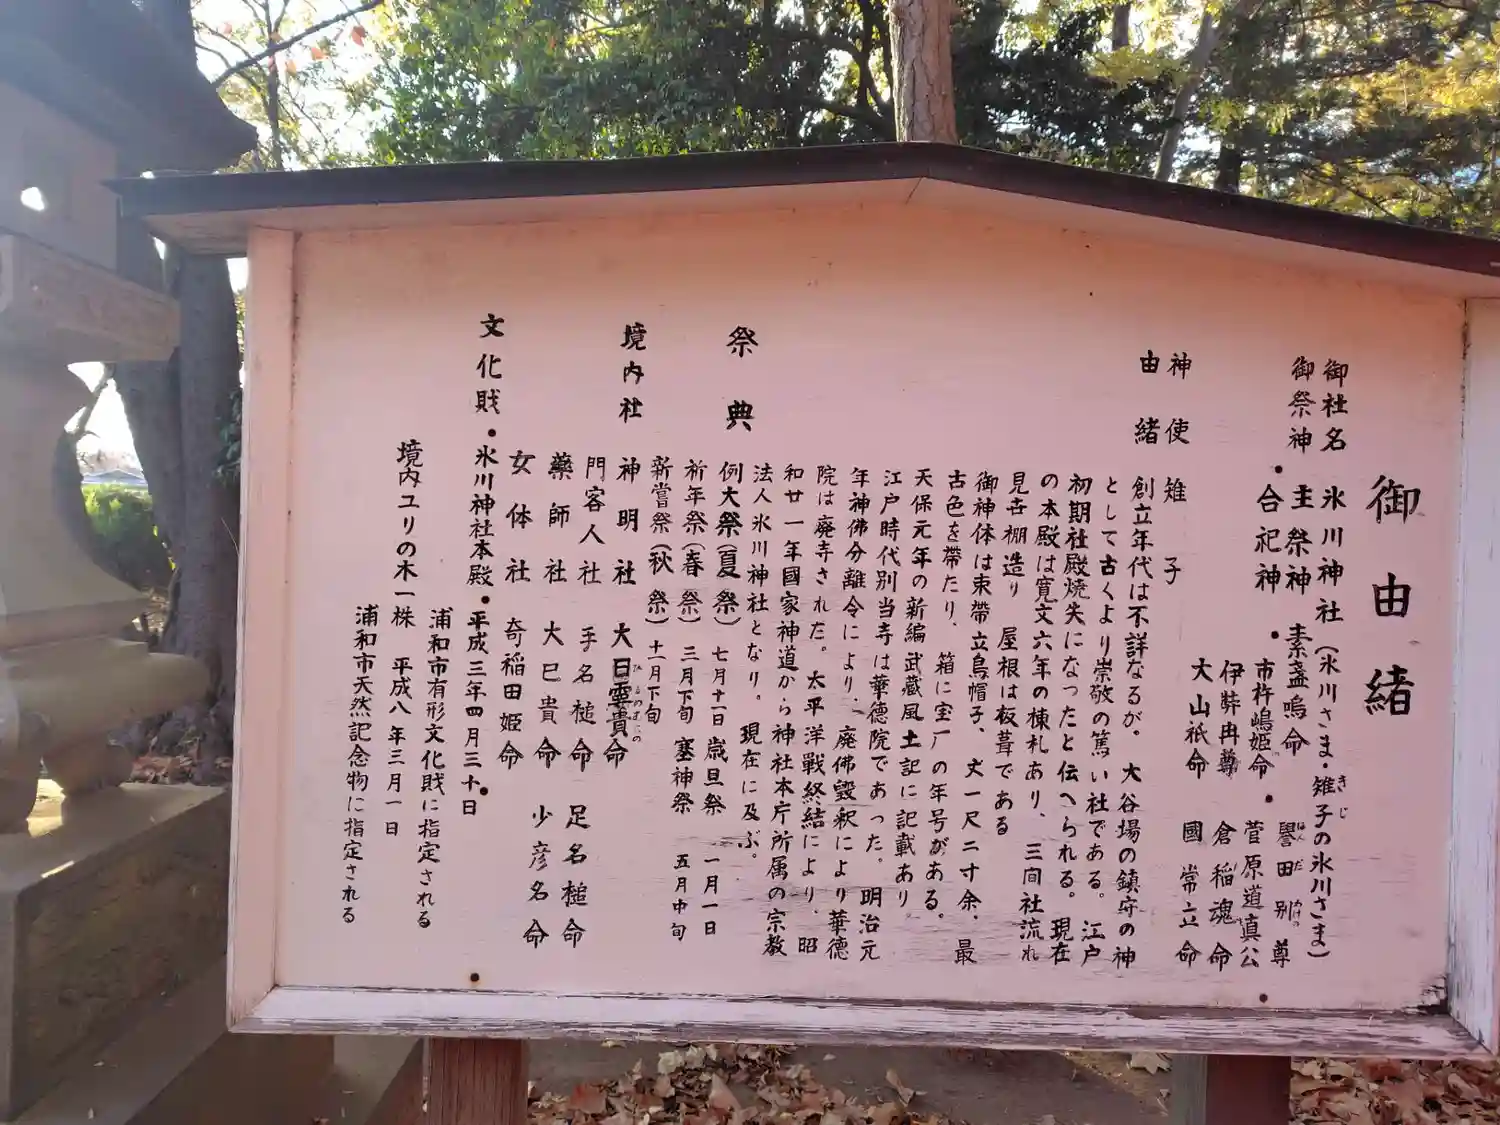 御由緒
御社名 氷川神社（氷川さま・雉子の氷川さま）
きじ
御祭神・主祭神 素盞嗚命
・合祀神・市杵嶋姫命・譽田別尊
ほんだわけの
伊弉冉尊 菅原道真公
大山祇命 倉稲魂命
國常立命
神使 雉子
由緒 創立年代は不詳なるが。大谷場の鎮守の神
として古くより崇敬の篤い社である。江戸
初期社殿焼失になったと伝へられる。現在
の本殿は寛文六年の棟札あり、三間社流れ
見世棚造り 屋根は板葺である
御神体は束帶立烏帽子、丈一尺二寸余、最
古色を帶たり、箱に宝厂の年号がある。
天保元年の新編武藏風土記に記載あり
江戸時代別当寺は華徳院であった。明治元
年神佛分離令により、廃佛毀釈により華徳
院は廃寺された。太平洋戰終結により、昭
和廿一年國家神道から神社本庁所属の宗教
法人氷川神社となり。現在に及ぶ。
祭典 例大祭（夏祭）七月十一日 歳旦祭 一月一日
祈年祭（春祭）三月下旬 塞神祭 五月中旬
新嘗祭（秋祭）十一月下旬
境内社 神明社 大日孁貴命
ひるめむちの
門客人社 手名槌命 足名槌命
藥師社 大巳貴命 少彦名命
女体社 奇稲田姫命
文化財・氷川神社本殿・平成三年四月三十日
浦和市有形文化財に指定される
境内ユリの木一株 平成八年三月一日
浦和市天然記念物に指定される